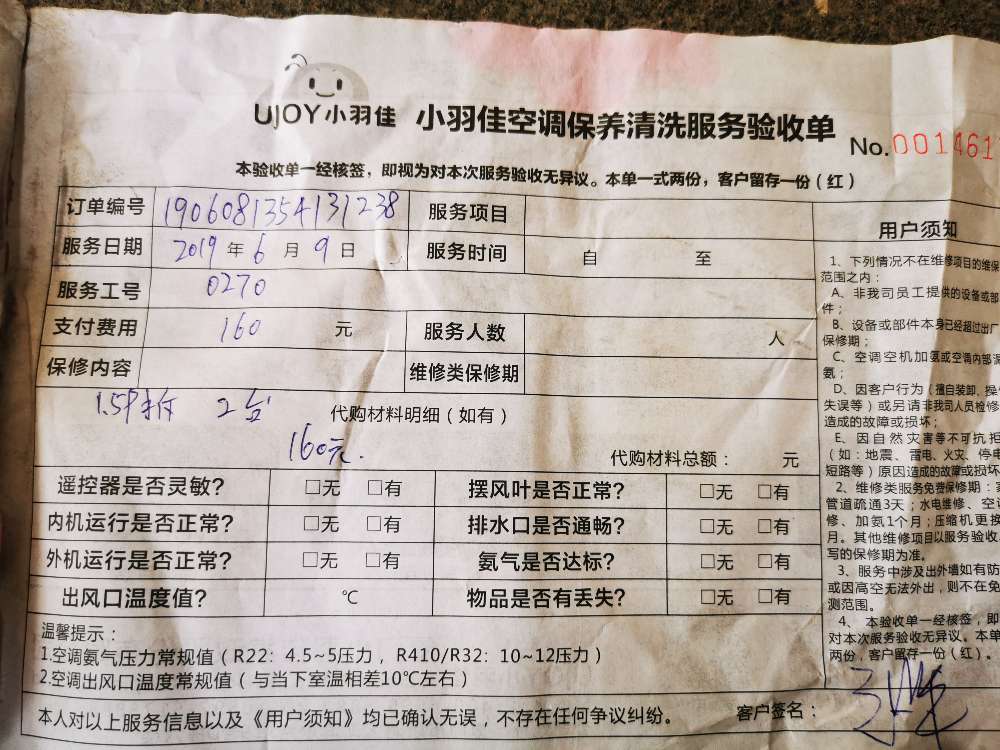 UJOY小羽佳 小羽佳空调保养清洗服务验收单
No.001461
本验收单一经核签，即视为对本次服务验收无异议。本单一式两份，客户留存一份（红）
订单编号 1906081354131238 服务项目
服务日期 2019年6月9日 服务时间 自 至
服务工号 0270
支付费用 160 元 服务人数 人
保修内容 维修类保修期
1.5P 2台
代购材料明细（如有）
160元.
代购材料总额： 元
遥控器是否灵敏? □无 □有 摆风叶是否正常? □无 □有
内机运行是否正常? □无 □有 排水口是否通畅? □无 □有
外机运行是否正常? □无 □有 氨气是否达标? □无 □有
出风口温度值? ℃ 物品是否有丢失? □无 □有
温馨提示：
1.空调氨气压力常规值（R22：4.5~5压力，R410/R32：10~12压力）
2.空调出风口温度常规值（与当下室温相差10℃左右）
本人对以上服务信息以及《用户须知》均已确认无误，不存在任何争议纠纷。 客户签名：
用户须知
1、下列情况不在维修项目的维保
范围之内：
A、非我司员工提供的设备或部
件；
B、设备或部件本身已经超过出厂
保修期；
C、空调空机加氨或空调内部漏
氨；
D、因客户行为（擅自装卸、操作
失误等）或另请非我司人员检修
造成的故障或损坏；
E、因自然灾害等不可抗拒
（如：地震、雷电、火灾、停电
短路等）原因造成的故障或损坏
2、维修类服务免费保修期：家
管道疏通3天；水电维修、空调
修、加氨1个月；压缩机更换
月。其他维修项目以服务验收
写的保修期为准。
3、服务中涉及出外墙如有防
或因高空无法外出，则不在免
测范围。
4、本验收单一经核签，即
对本次服务验收无异议。本单
两份，客户留存一份（红）。